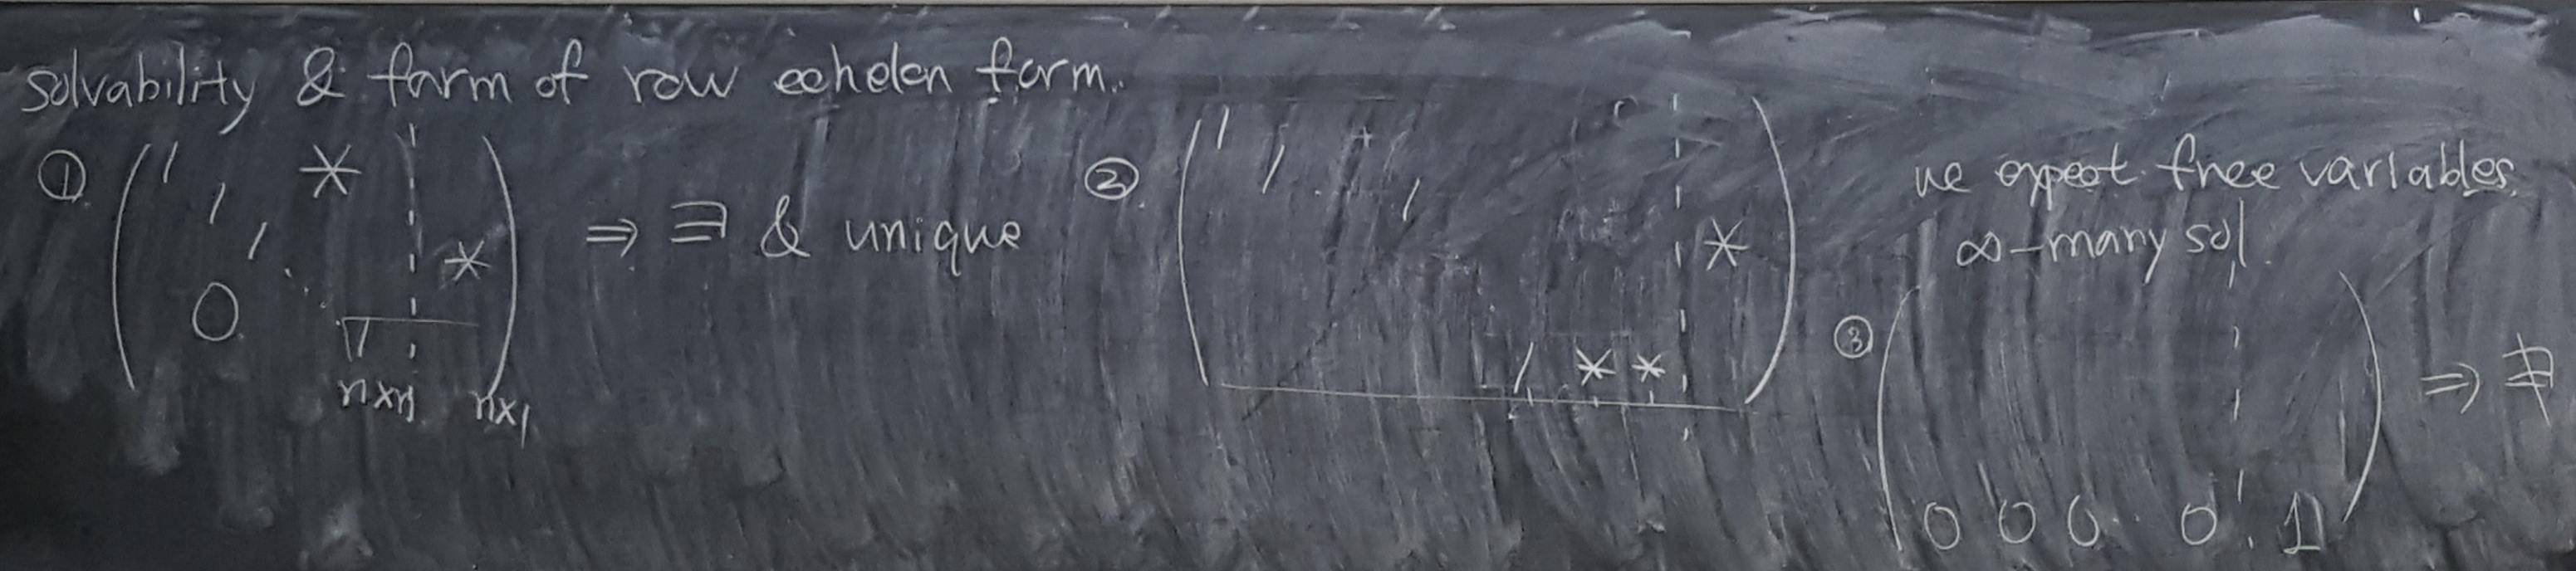 solvability & form of row echelon form.
① ( 1 * ¦ )
1
1 ¦ *
0 ⋱
1 ¦
n×n n×1
⇒ ∃ & unique
② ( 1 1 1 ¦ * )
1 * * ¦
we expect free variables.
∞-many sol.
③ ( 0 0 0 ·· 0 ¦ 1 ) ⇒ ∄